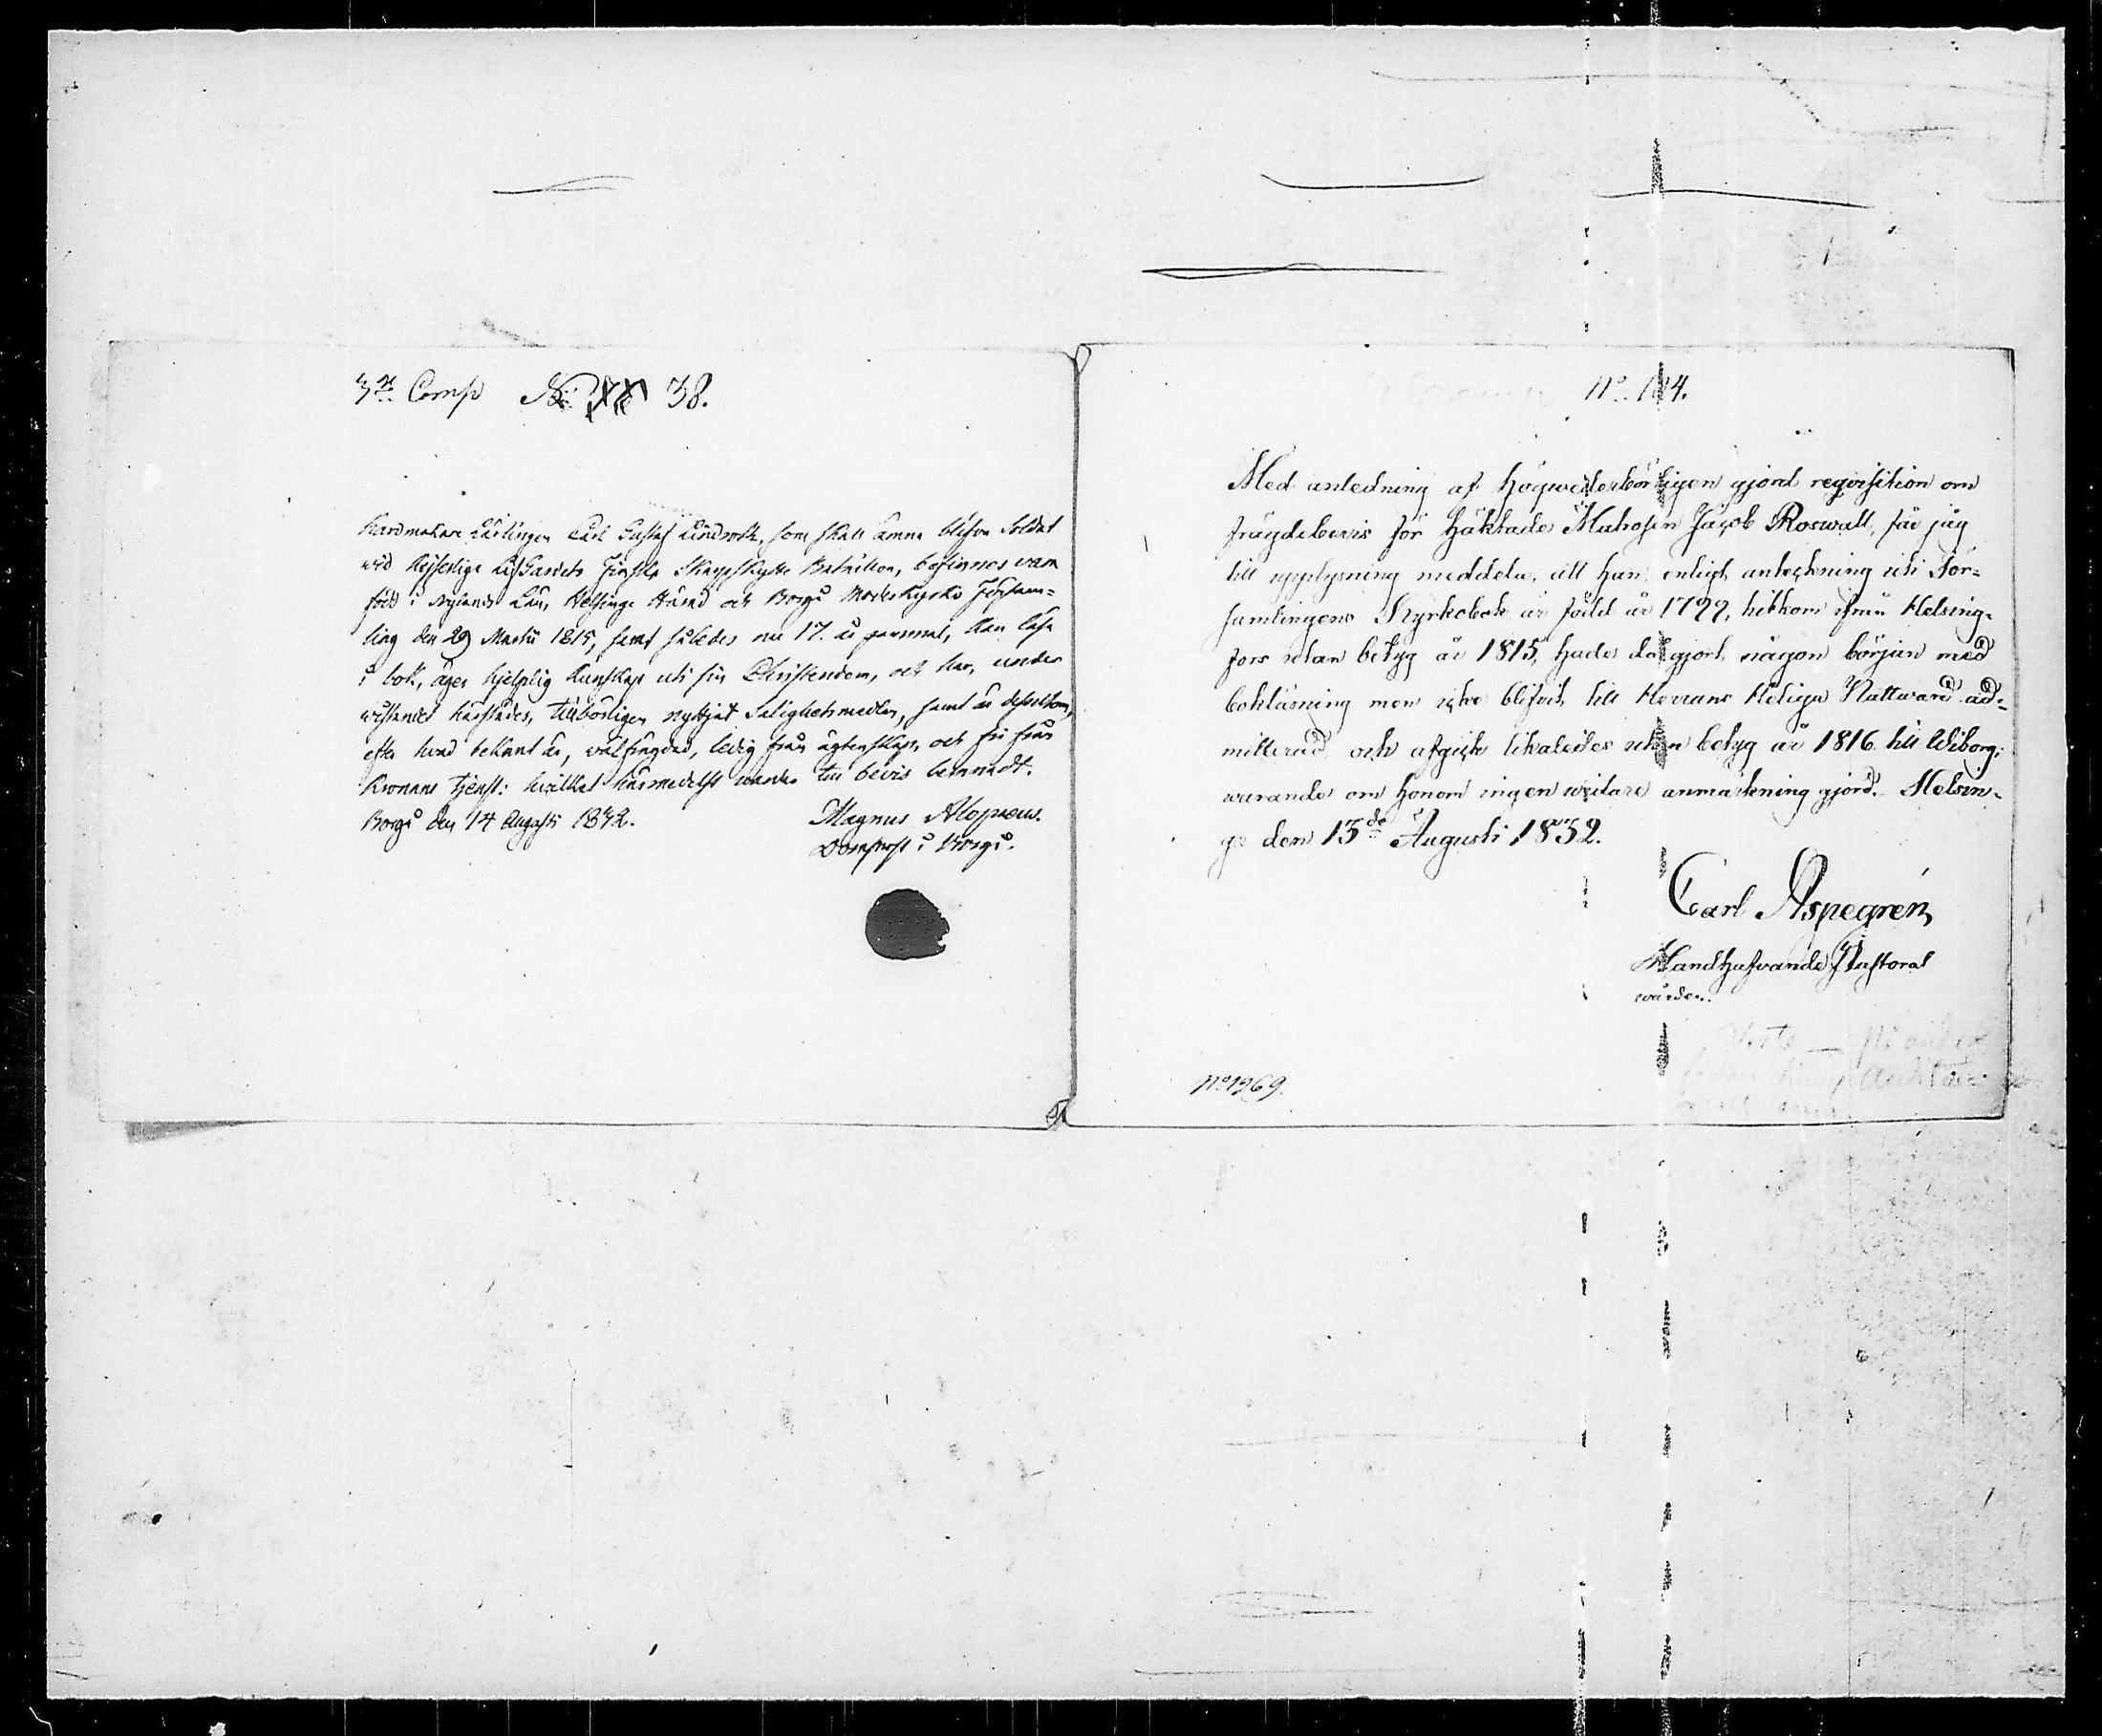 3dje Comp No 38.
Kardmakare Lärlingen Carl Gustaf Lindroth, som skall ämna blifva Soldat
wid Kejserliga LifGardets Finska Skarpskytte Bataillon, befinnes vara
född i Nylands Län, Helsinge Härad och Borgå Moderkyrko Försam-
ling den 29 Martii 1815, samt således nu 17. år gammal, kan läsa
i bok, äger hjelplig kunskap uti sin Christendom, och har, under
wistandet härstädes, tillbörligen nyttjat Salighetsmedlen, samt är dessutom,
efter hvad bekant är, wälfrägdad, ledig från ägtenskap, och fri från
Kronans tjenst: hvilket härmedelst warder till bevis lemnadt.
Borgå den 14 Augusti 1832.
Magnus Alopaeus.
Domprost i Borgå.
No 184.
Med anledning af högwederbörligen gjord reqvisition om
frägdebevis för häktade Mahosen Jacob Roswall, får jag
till upplysning meddela, att han, enligt anteckning uti För-
samlingens Kyrkobok är född år 1799, hitkom ifrån Helsing-
fors utan betyg år 1815, hade då gjort någon början med
bokläsning men icke blifvit till Herrans Heliga Nattward ad-
mitterad och afgick likaledes utan betyg år 1816 till Wiborg;
warande om honom ingen widare anmärkning gjord. Helsin-
ge den 13de Augusti 1832.
Carl Aspegren,
Handhafvande Pastoral
wården.
No 1269.